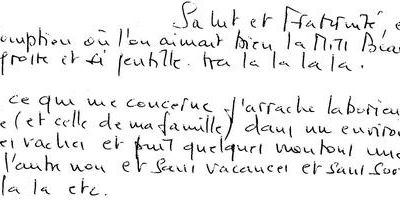 Salut et Fraternité,
omption où l'on aimait bien la Miti
et si gentille. tra la la la la.
ce que me concerne j'arrache
(et celle de ma famille) dans un
vaches et puit quelques moutons une
l'autre non et sans vacances et sans
la la etc.